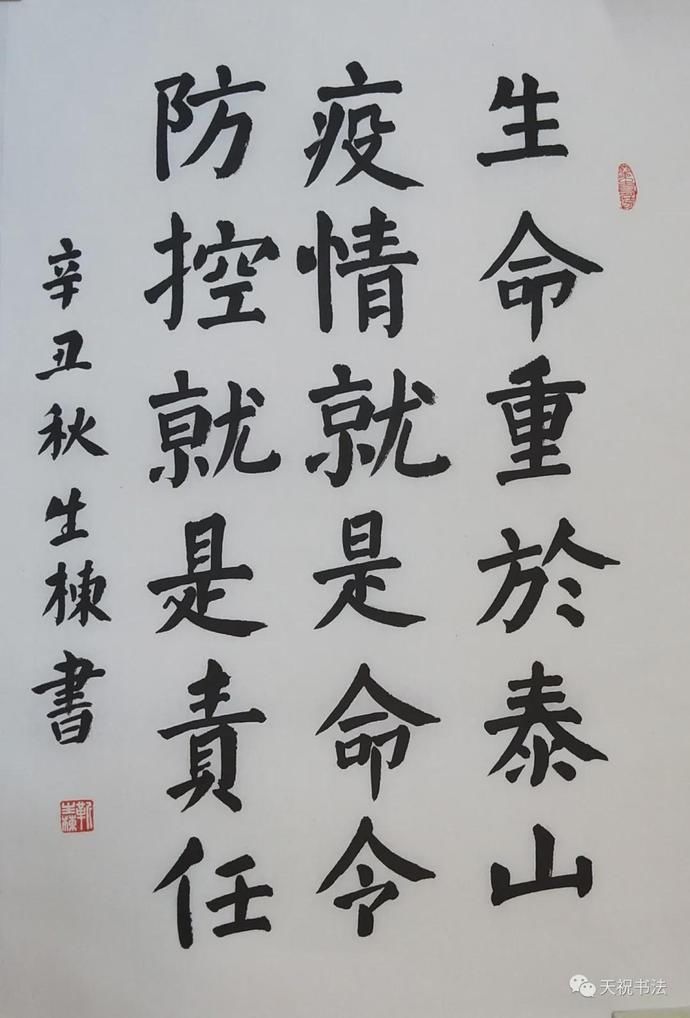 生命重於泰山
疫情就是命令
防控就是責任
辛丑秋生棟書
靳生棟
天祝书法